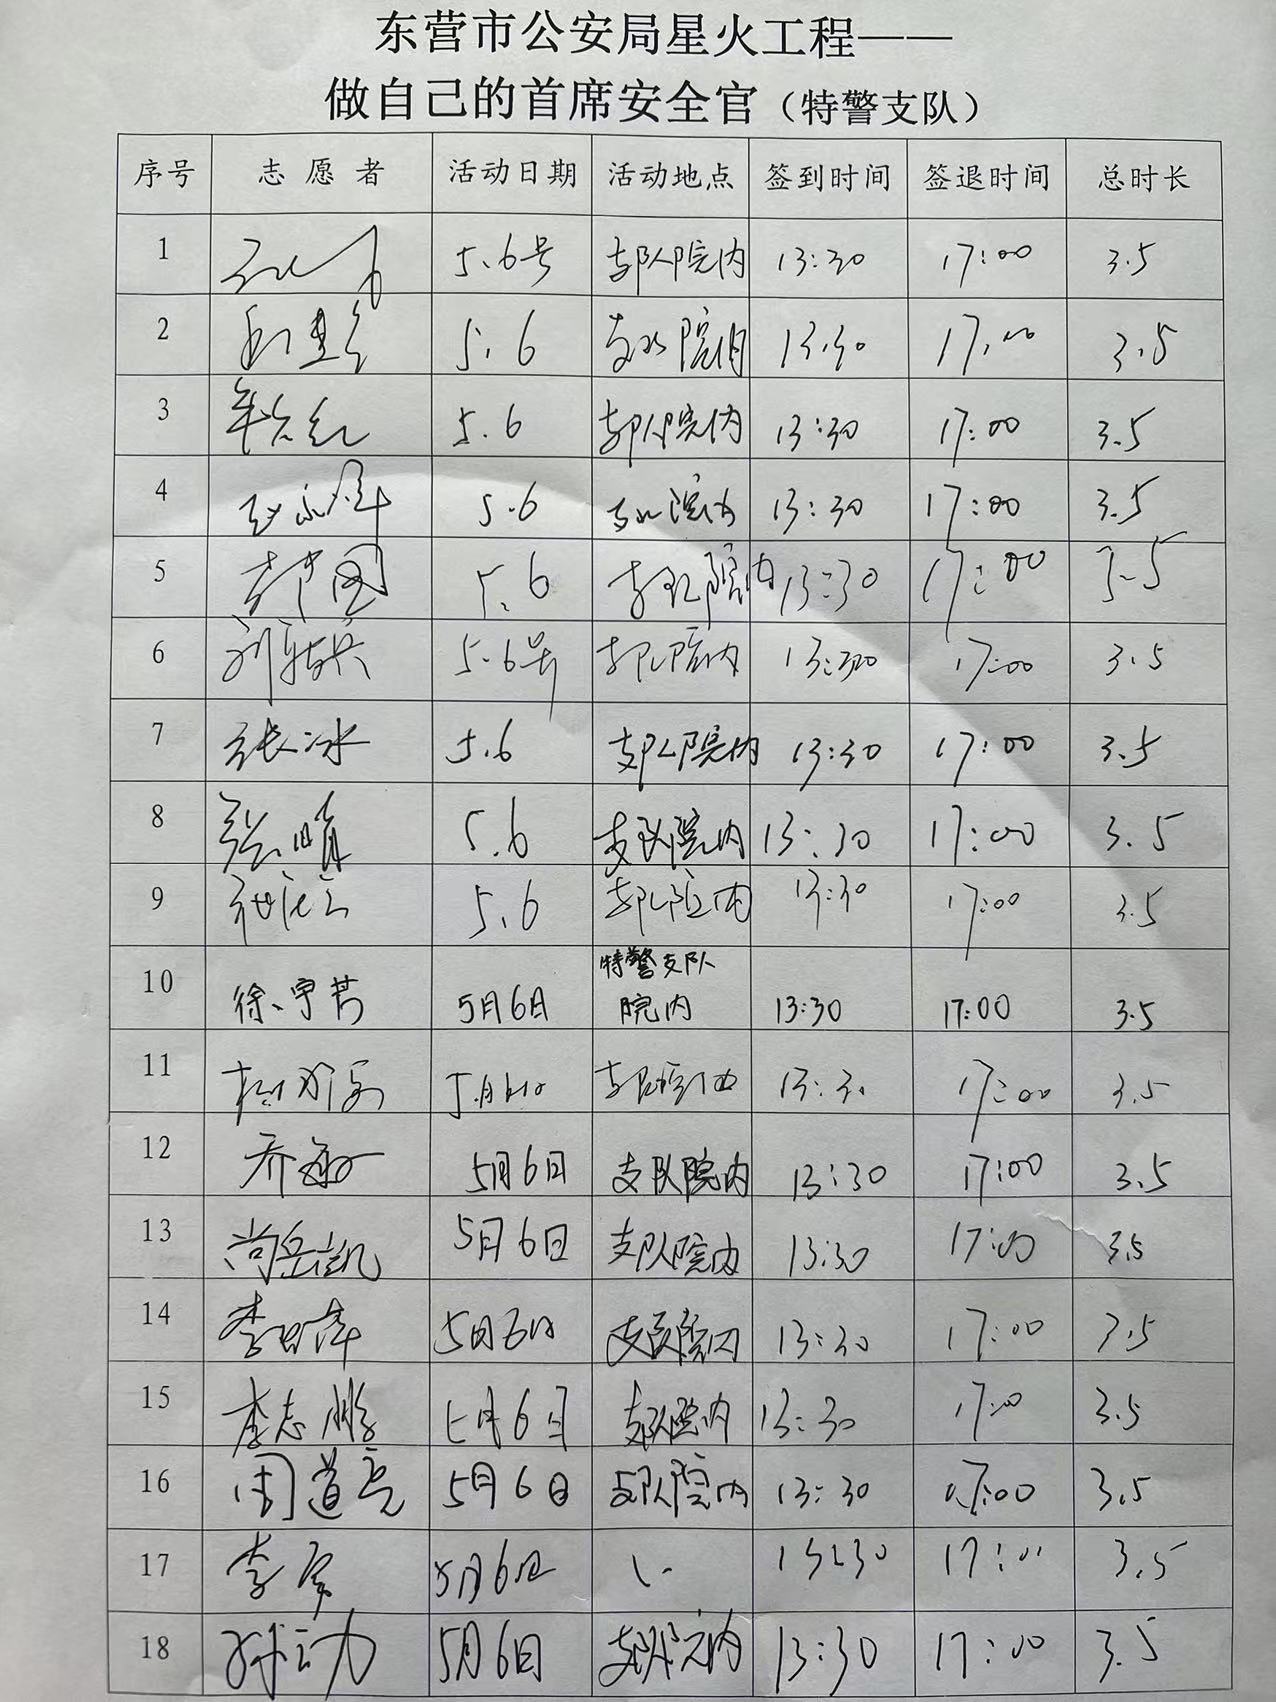 东营市公安局星火工程——
做自己的首席安全官（特警支队）
序号 志愿者 活动日期 活动地点 签到时间 签退时间 总时长
1 5.6号 支队院内 13:30 17:00 3.5
2 5.6 支队院内 13:30 17:00 3.5
3 5.6 支队院内 13:30 17:00 3.5
4 5.6 支队院内 13:30 17:00 3.5
5 5.6 支队院内 13:30 17:00 3.5
6 5.6号 支队院内 13:30 17:00 3.5
7 张冰 5.6 支队院内 13:30 17:00 3.5
8 5.6 支队院内 13:30 17:00 3.5
9 5.6 支队院内 13:30 17:00 3.5
特警支队
10 5月6日 院内 13:30 17:00 3.5
11 5月6日 支队院内 13:30 17:00 3.5
12 乔 5月6日 支队院内 13:30 17:00 3.5
13 尚岳凯 5月6日 支队院内 13:30 17:00 3.5
14 李 5月6日 支队院内 13:30 17:00 3.5
15 李志鹏 5月6日 支队院内 13:30 17:0 3.5
16 周道亮 5月6日 支队院内 13:30 17:00 3.5
17 李 5月6日 13:30 17:00 3.5
18 5月6日 支队院内 13:30 17:00 3.5